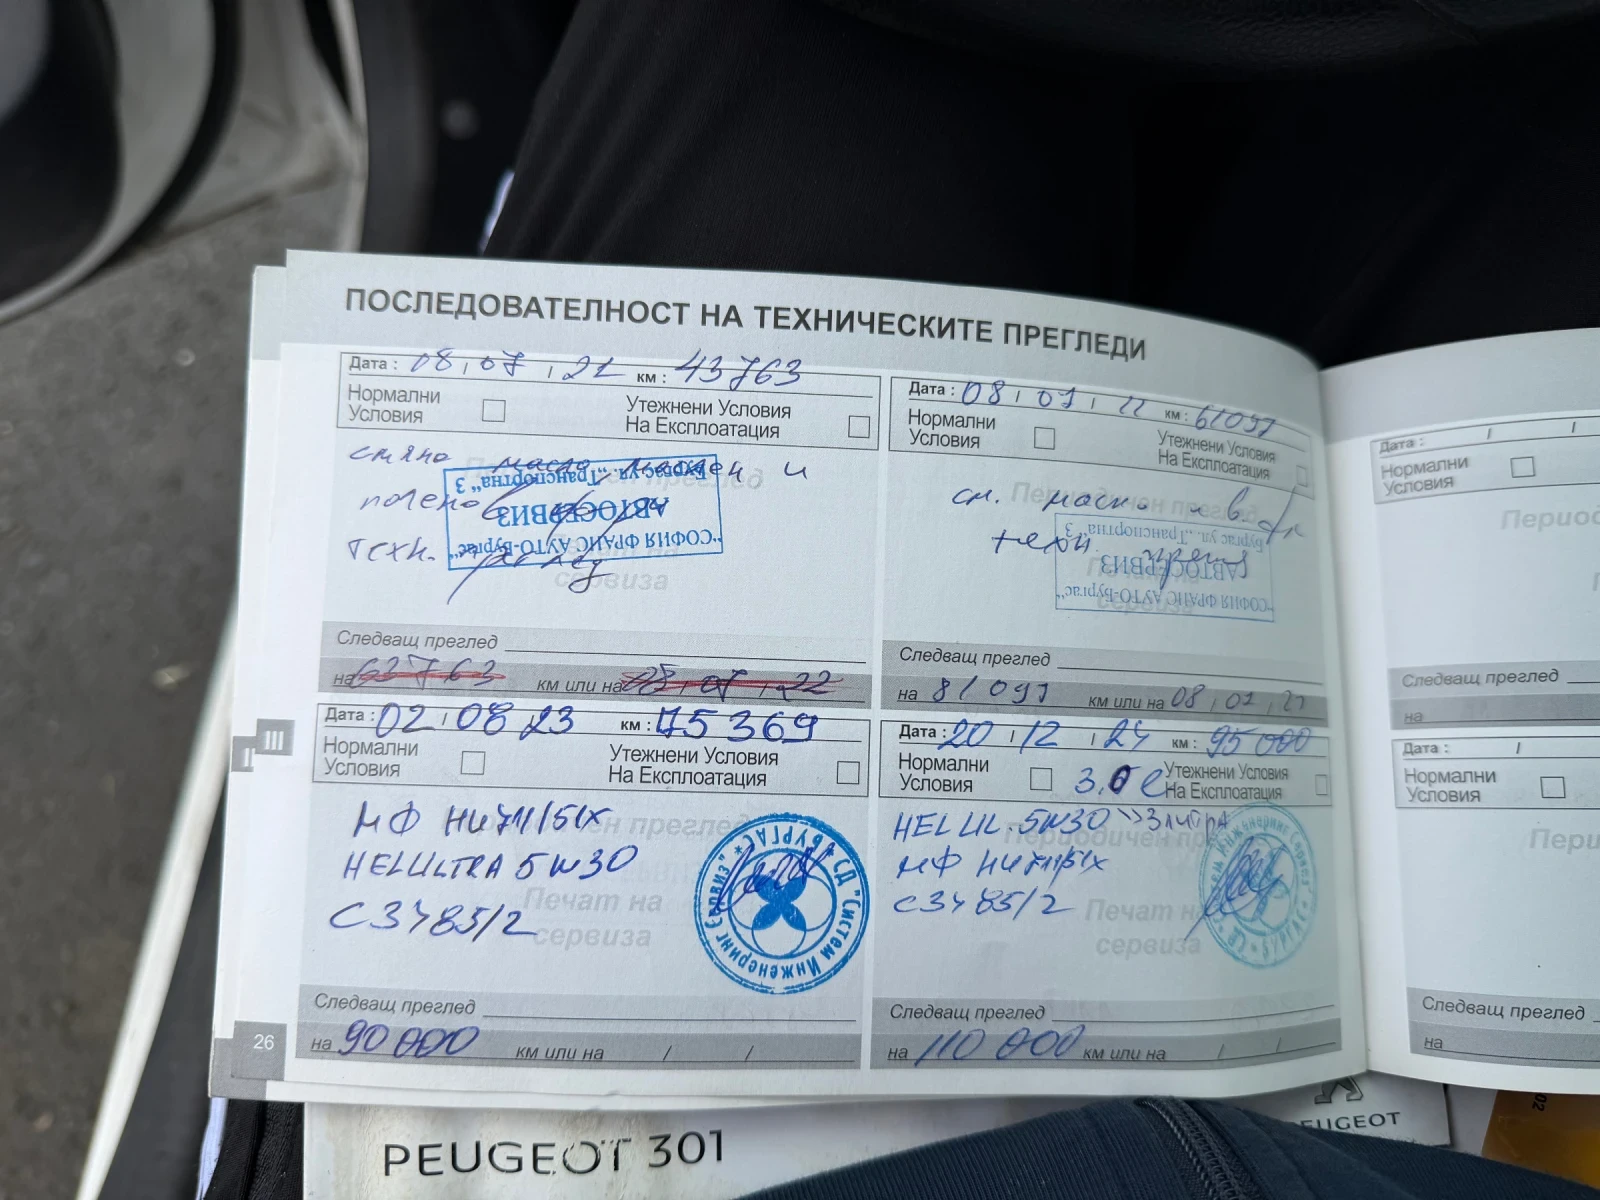 ПОСЛЕДОВАТЕЛНОСТ НА ТЕХНИЧЕСКИТЕ ПРЕГЛЕДИ
Дата : 08 / 07 / 21 км : 43763
Нормални Условия
Утежнени Условия На Експлоатация
смяна масло и
техн. преглед
"СОФИЯ ФРАНС АУТО-Бургас"
АВТОСЕРВИЗ
Бургас ул. "Транспортна" 3
сервиза
Следващ преглед
на 63763 км или на 08 / 07 / 22
Дата : 08 / 07 / 22 км : 61091
Нормални Условия
Утежнени Условия На Експлоатация
Периодичен преглед
см. масло и в. ф-р
техн. преглед
"СОФИЯ ФРАНС АУТО-Бургас"
АВТОСЕРВИЗ
Бургас ул. "Транспортна" 3
Печат на
сервиза
Следващ преглед
на 81091 км или на 08 / 07 /
Дата : 02 / 08 23 км : 75369
Нормални Условия
Утежнени Условия На Експлоатация
МФ HU711/51X
HELULTRA 5W30
C3485/2
Периодичен преглед
Печат на
сервиза
СД "Систем Инженеринг Сервиз" * БУРГАС *
Следващ преглед
на 90 000 км или на / /
Дата : 20 / 12 / 24 км : 95 000
Нормални Условия
Утежнени Условия На Експлоатация
HELUL. 5W30 >> 3 литра
МФ HU711/51X
C3485/2
Периодичен
Печат на
сервиза
БУРГАС
Следващ преглед
на 110 000 км или на / /
III
I
26
Дата : / /
Нормални Условия
Перио
Следващ преглед
на
Дата : /
Нормални Условия
Пери
Следващ преглед
на
PEUGEOT 301
PEUGEOT
02